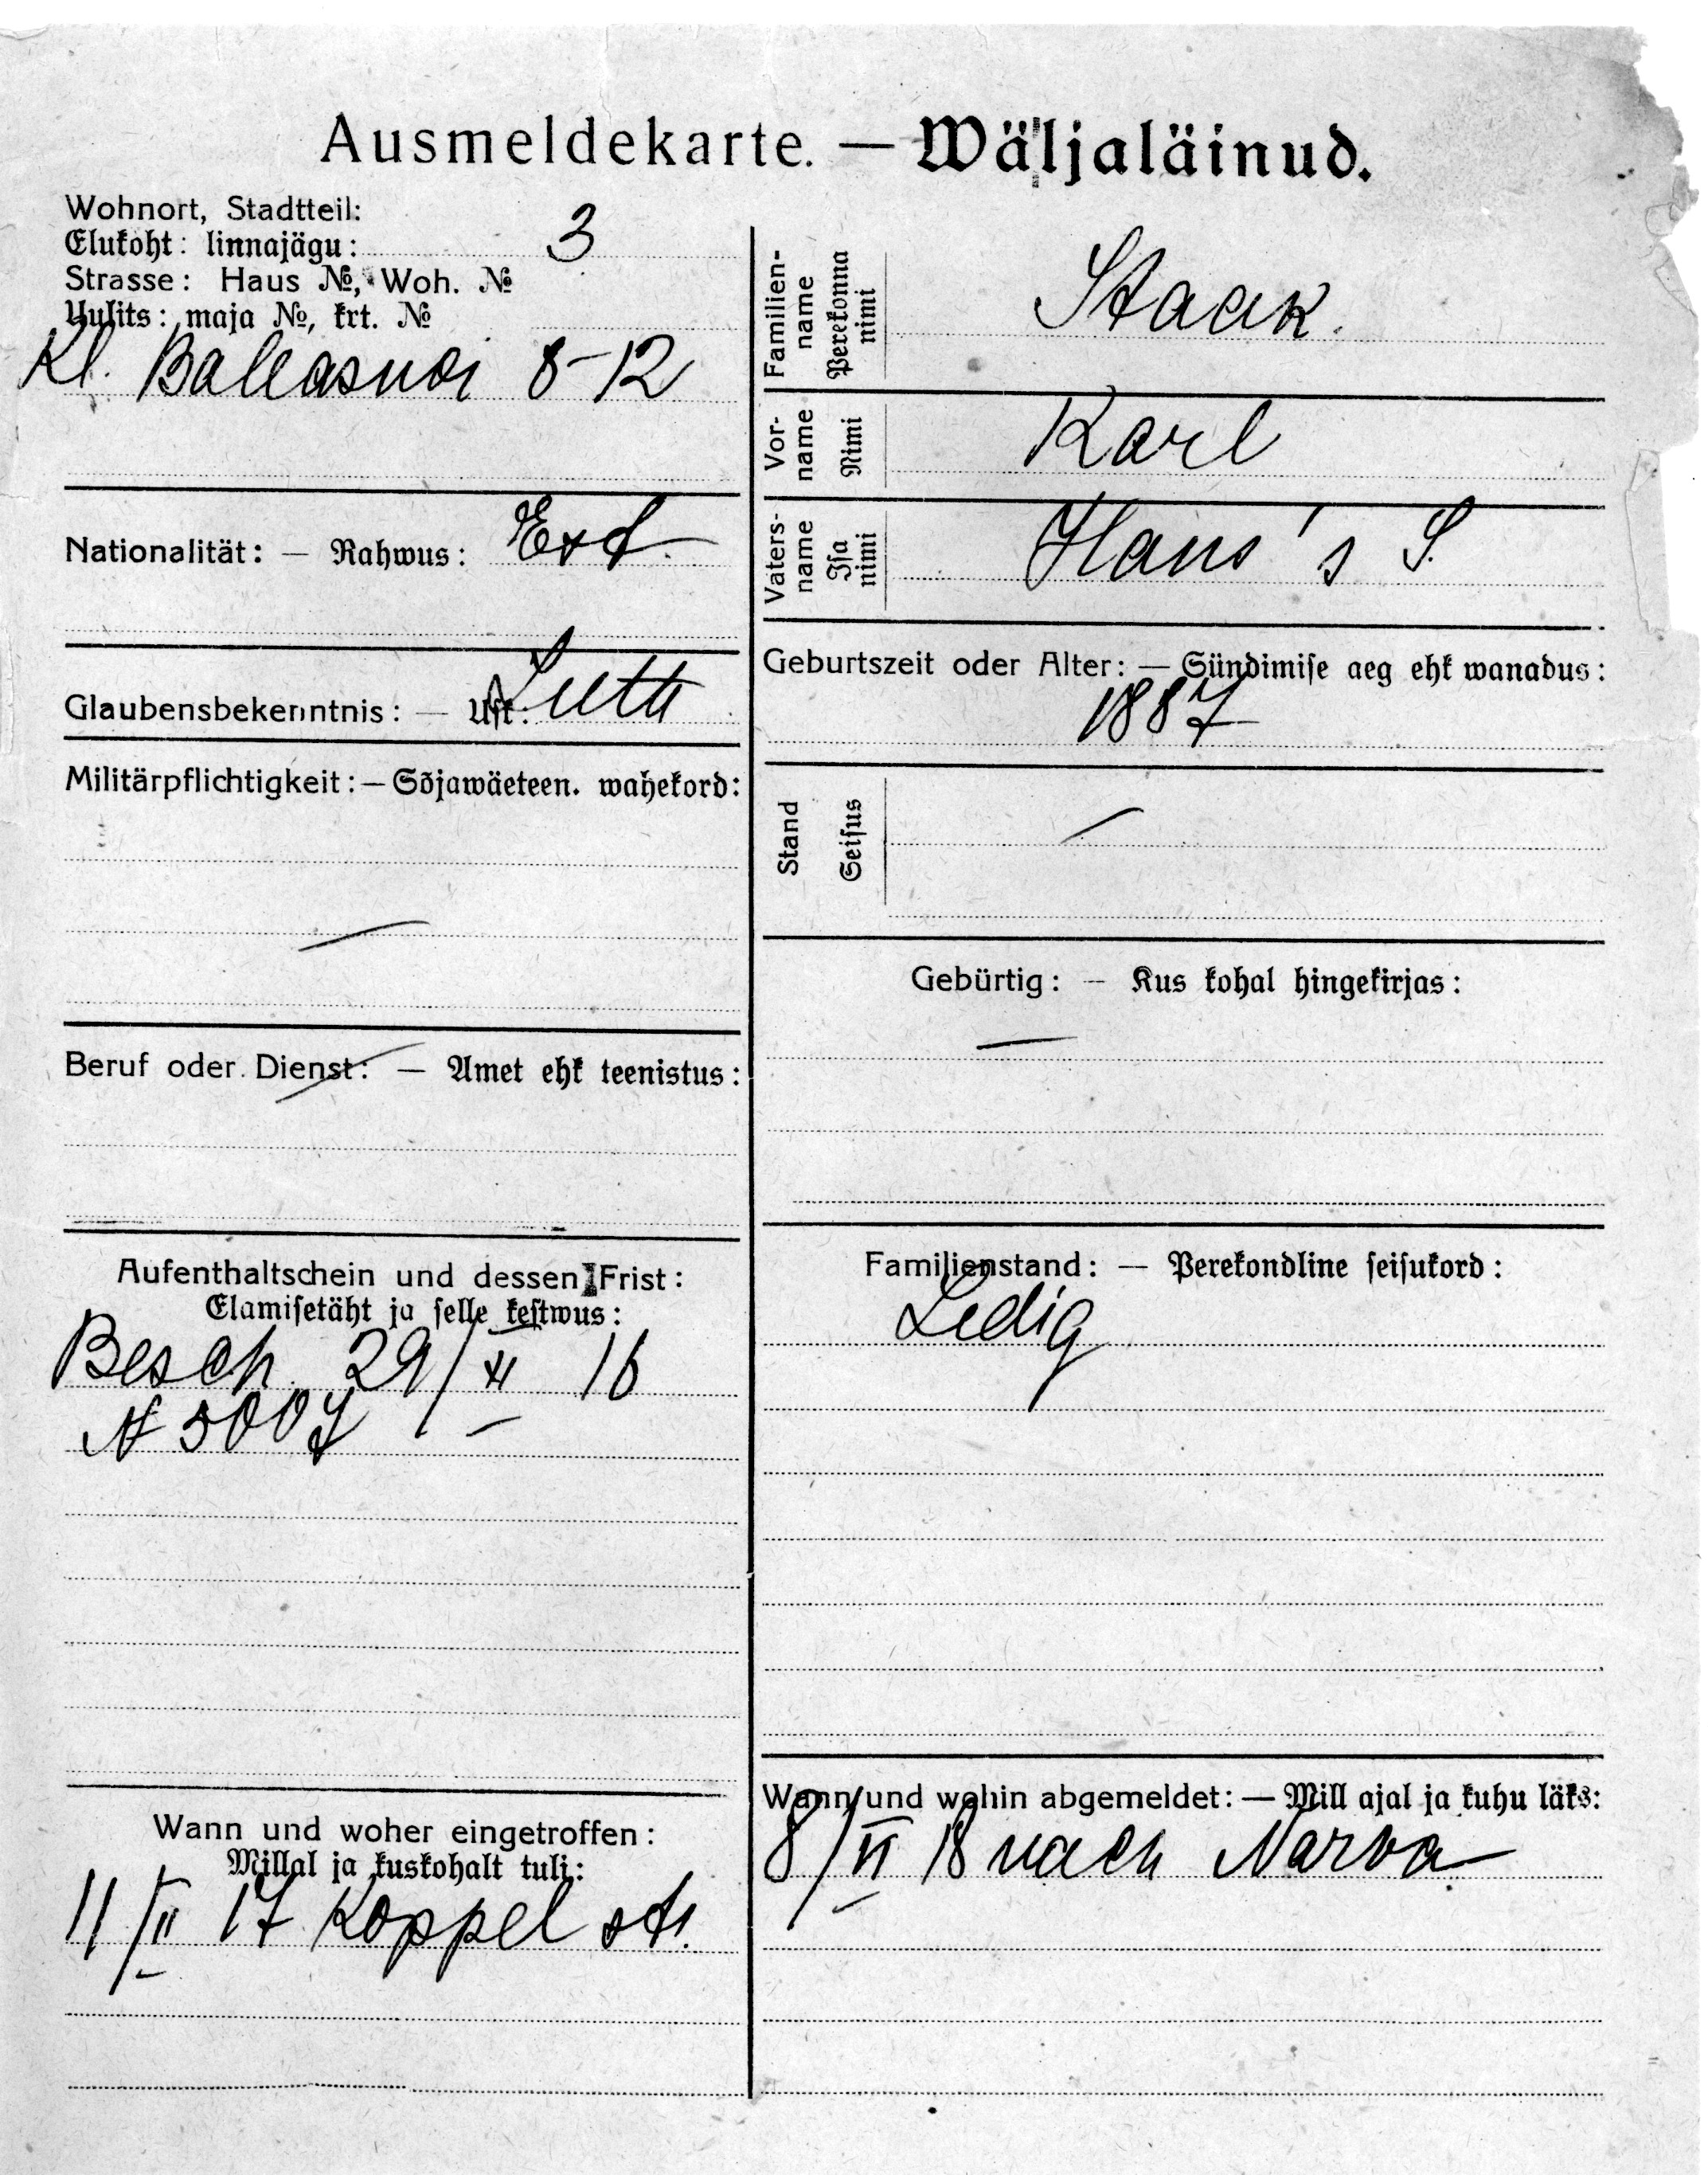 Ausmeldekarte. — Wäljaläinud.
Wohnort, Stadtteil:
Elukoht: linnajägu: 3
Strasse: Haus №, Woh. №
Uulits: maja №, krt. №
Kl. 8-12
Nationalität: — Rahwus: Est.
Glaubensbekenntnis: — Usk: Luth
Militärpflichtigkeit: — Sõjawäeteen. wahekord:
—
Beruf oder Dienst: — Amet ehk teenistus:
Aufenthaltschein und dessen Frist:
Elamisetäht ja selle kestwus:
Besch. 29/XI 16
№ 5007
Wann und woher eingetroffen:
Millal ja kuskohalt tuli:
11/II 17 Koppel str.
Familien-
name
Perekonna
nimi
Staak.
Vor-
name
Nimi
Karl
Vaters-
name
Isa
nimi
Hans's S.
Geburtszeit oder Alter: — Sündimise aeg ehk wanadus:
1887
Stand
Seisus
—
Gebürtig: — Kus kohal hingekirjas:
—
Familienstand: — Perekondline seisukord:
Ledig
Wann und wohin abgemeldet: — Mill ajal ja kuhu läks:
8/VI 18 nach Narva